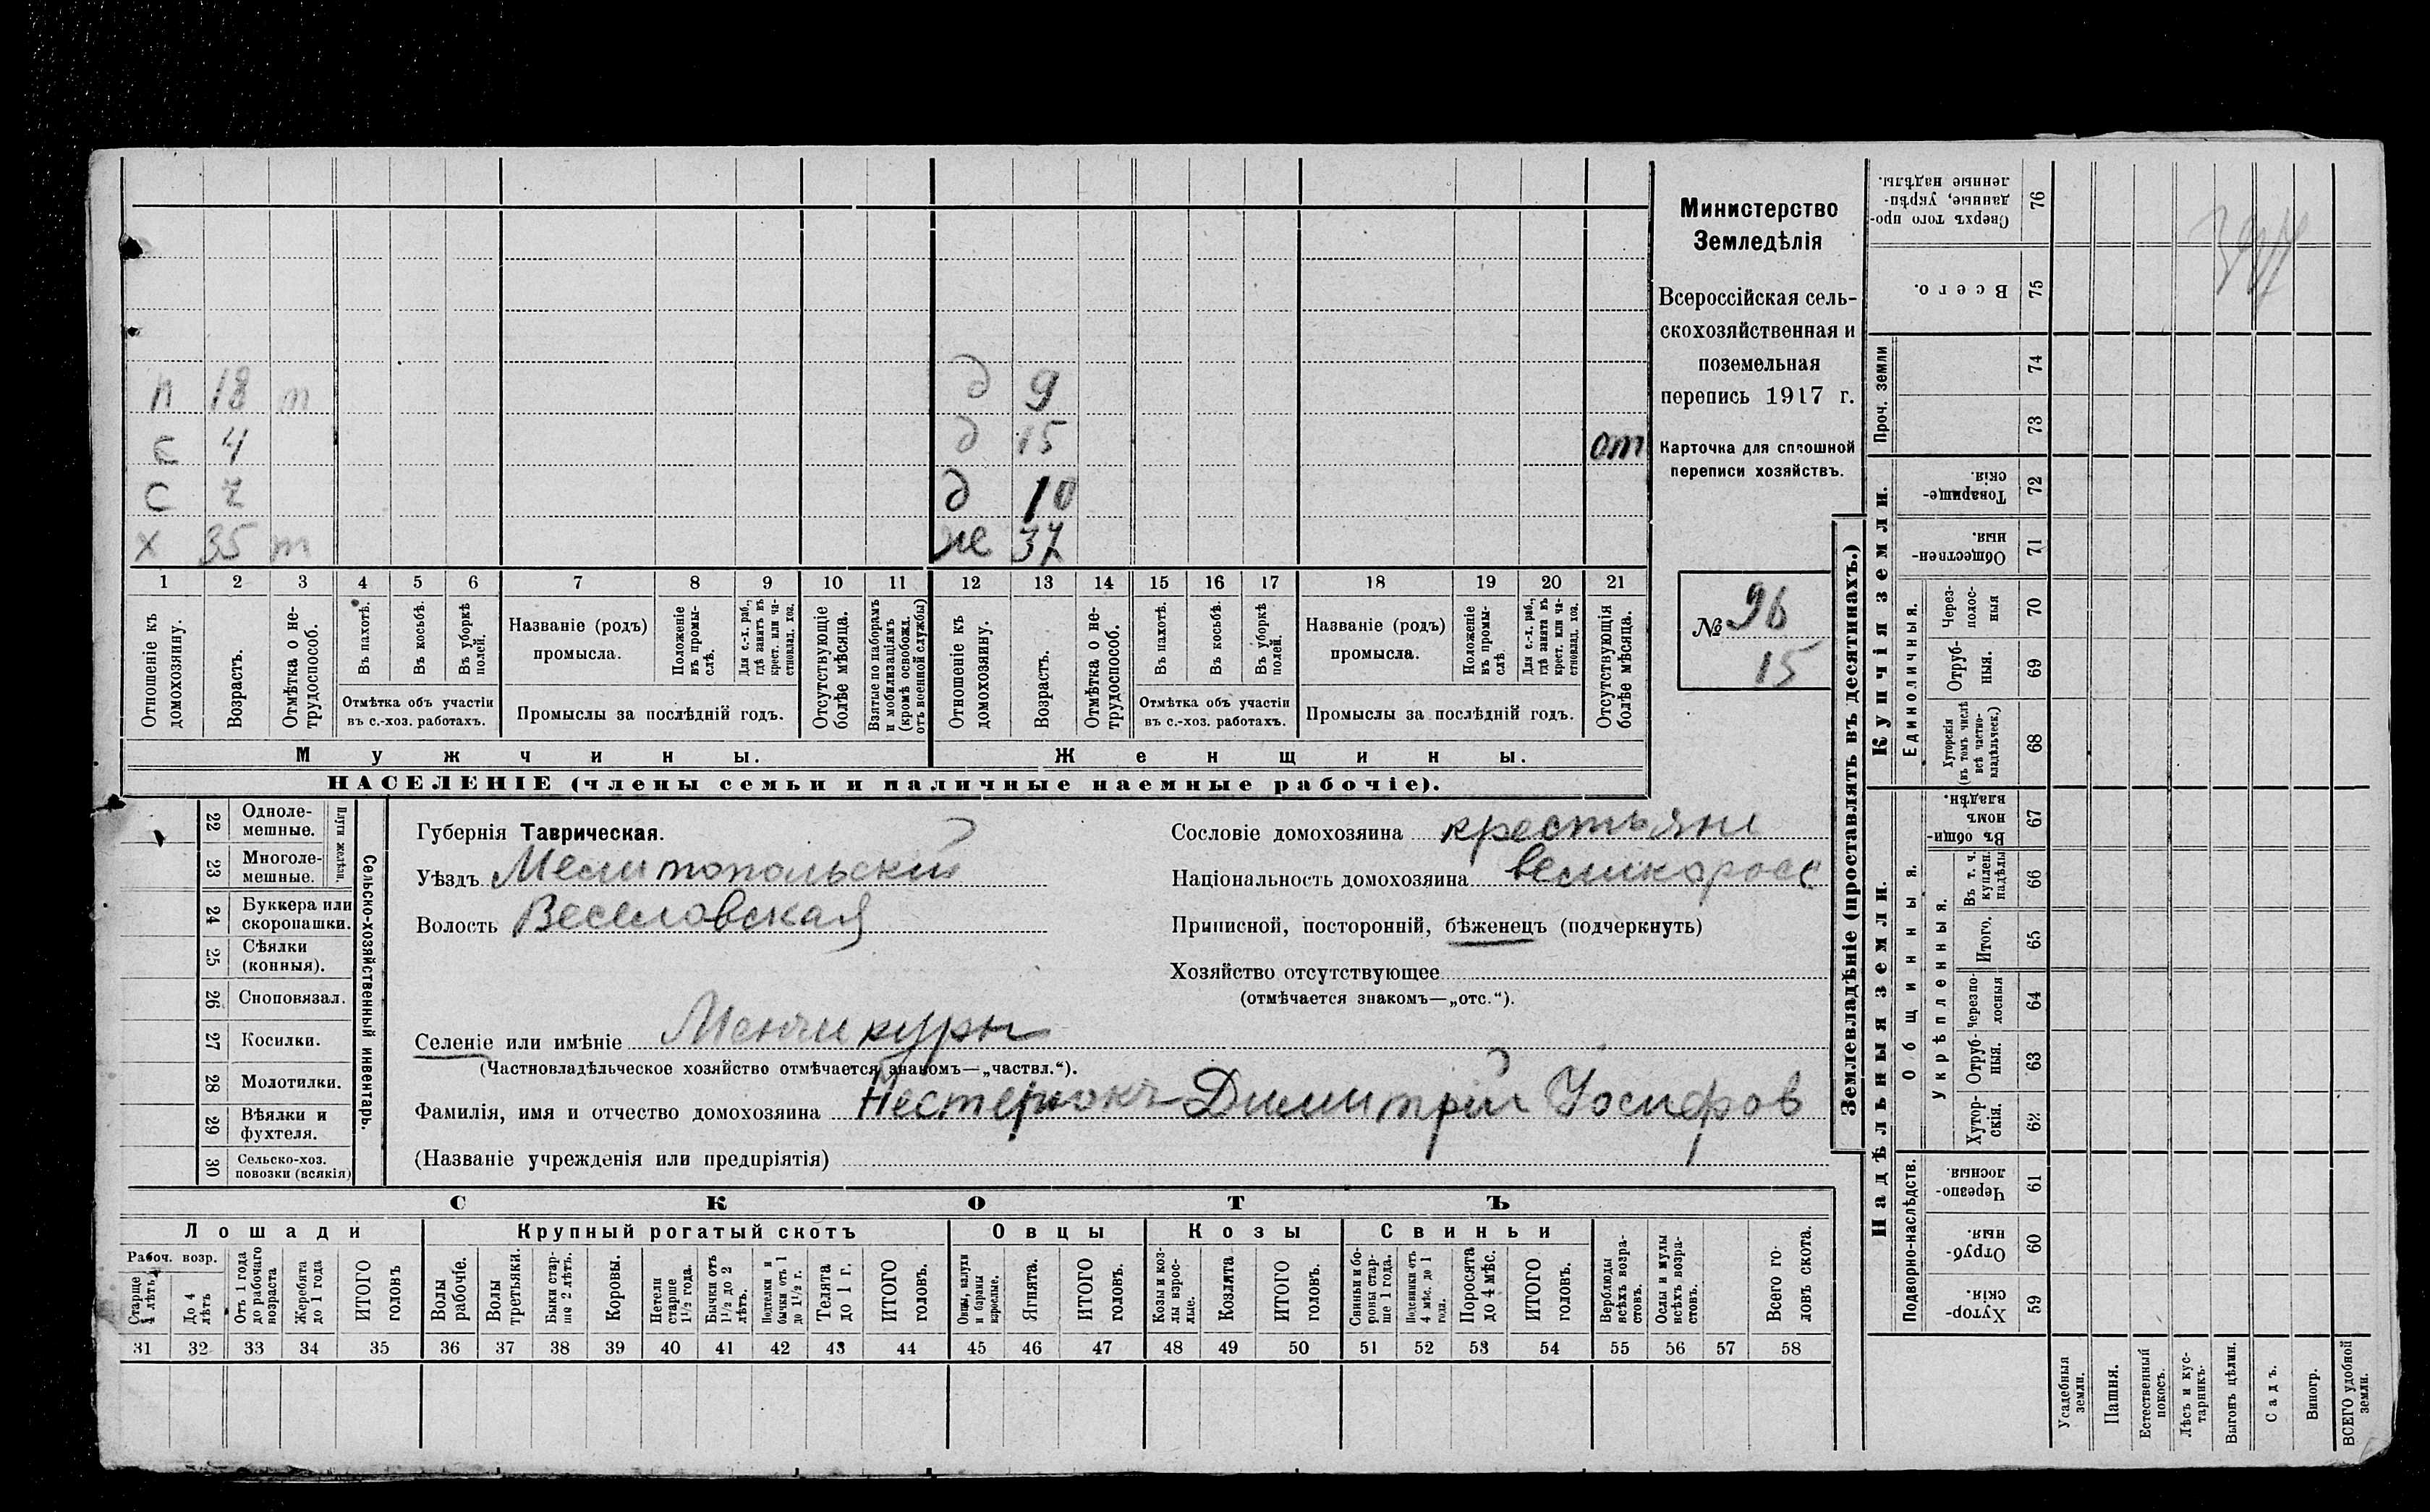 Министерство
Земледѣлія
Всероссійская сель-
скохозяйственная и
поземельная
перепись 1917 г.
Карточка для сплошной
переписи хозяйствъ.
№ 96
15
п 18 т д 9
с 4 д 15 от
с 7 д 10
х 35 т же 37
1 2 3 4 5 6 7 8 9 10 11 12 13 14 15 16 17 18 19 20 21
Отношеніе къ домохозяину.
Возрастъ.
Отмѣтка о не-трудоспособ.
Въ пахотѣ.
Въ косьбѣ.
Въ уборкѣ полей.
Отмѣтка объ участіи
въ с.-хоз. работахъ.
Названіе (родъ)
промысла.
Положеніе въ промы-слѣ.
Для с.-х. раб., гдѣ занятъ въ крест. или ча-стновлад. хоз.
Промыслы за послѣдній годъ.
Отсутствующіе болѣе мѣсяца.
Взятые по наборамъ и мобилизаціямъ (кромѣ освобожд. отъ военной службы)
Отношеніе къ домохозяину.
Возрастъ.
Отмѣтка о не-трудоспособ.
Въ пахотѣ.
Въ косьбѣ.
Въ уборкѣ полей.
Отмѣтка объ участіи
въ с.-хоз. работахъ.
Названіе (родъ)
промысла.
Положеніе въ промы-слѣ.
Для с.-х. раб., гдѣ занята въ крест. или ча-стновлад. хоз.
Промыслы за послѣдній годъ.
Отсутствующія болѣе мѣсяца.
Мужчины. Женщины.
НАСЕЛЕНІЕ (члены семьи и наличные наемные рабочіе).
Сельско-хозяйственный инвентарь.
Плуги желѣзн.
22 Одноле-мешные.
23 Многоле-мешные.
24 Буккера или скоропашки.
25 Сѣялки (конныя).
26 Сноповязал.
27 Косилки.
28 Молотилки.
29 Вѣялки и фухтеля.
30 Сельско-хоз. повозки (всякія)
Губернія Таврическая.
Уѣздъ Мелитопольский
Волость Веселовская
Сословіе домохозяина крестьяне
Національность домохозяина великоросс
Приписной, посторонній, бѣженецъ (подчеркнуть)
Хозяйство отсутствующее
(отмѣчается знакомъ—„отс.“).
Селеніе или имѣніе Менчикуры
(Частновладѣльческое хозяйство отмѣчается знакомъ—„частвл.“).
Фамилія, имя и отчество домохозяина Нестерюкъ Димитрій Іосифов
(Названіе учрежденія или предпріятія)
СКОТЪ
Лошади Крупный рогатый скотъ Овцы Козы Свиньи
Рабоч. возр.
Старше 4 лѣтъ
До 4 лѣтъ
Отъ 1 года до рабочаго возраста
Жеребята до 1 года
ИТОГО головъ
Волы рабочіе.
Волы третьяки.
Быки стар-ше 2 лѣтъ.
Коровы.
Нетели старше 1½ года.
Бычки отъ 1½ до 2 лѣтъ.
Подтелки и бычки отъ 1 до 1½ г.
Телята до 1 г.
ИТОГО головъ.
Овцы, валухи и бараны взрослые.
Ягнята.
ИТОГО головъ.
Козы и коз-лы взрос-лые.
Козлята
ИТОГО головъ.
Свиньи и бо-ровы стар-ше 1 года.
Подсвинки отъ 4 мѣс. до 1 года.
Поросята до 4 мѣс.
ИТОГО головъ.
Верблюды всѣхъ возра-стовъ.
Ослы и мулы всѣхъ возра-стовъ.
Всего го-ловъ скота.
31 32 33 34 35 36 37 38 39 40 41 42 43 44 45 46 47 48 49 50 51 52 53 54 55 56 57 58
Землевладѣніе (проставлять въ десятинахъ.)
Надѣльныя земли. Купчія земли. Проч. земли
Подворно-наслѣдств.
Общинныя.
Укрѣпленныя.
Единоличныя.
Сверхъ того про-данные, укрѣп-ленные надѣлы. 76
Всего. 75
74
73
Товарище-скія 72
Обществен-ныя. 71
Через-полос-ныя 70
Отруб-ныя. 69
Хуторскія (въ томъ числѣ всѣ частно-владѣльческ.) 68
Въ общи-номъ владѣн. 67
Въ т. ч. куплен. надѣлы 66
Итого. 65
Черезпо-лосныя 64
Отруб-ныя. 63
Хутор-скія. 62
Черезпо-лосныя. 61
Отруб-ныя. 60
Хутор-скія. 59
Усадебныя земли.
Пашня.
Естественный покосъ.
Лѣсъ и кус-тарникъ.
Выгонъ цѣлин.
Садъ.
Виногр.
ВСЕГО удобной земли.